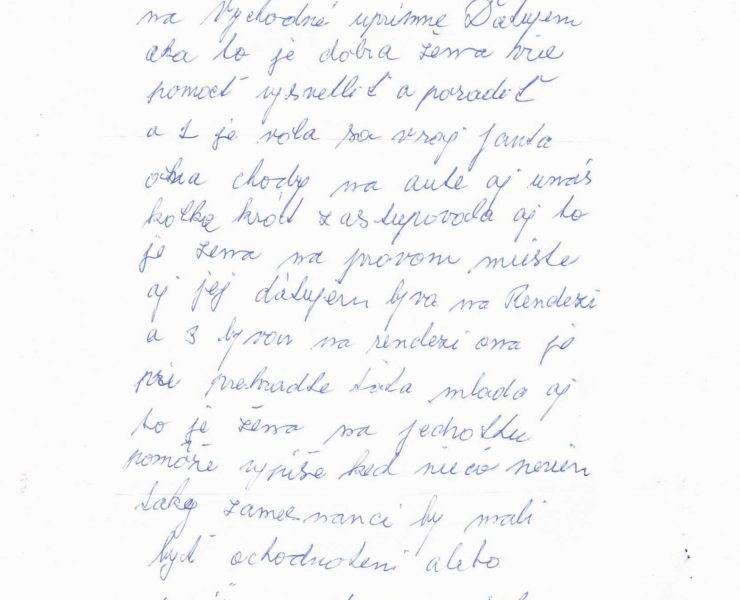 na Východné uprimne Ďakujem
aka to je dobra žena vie
pomocť vysvetliť a poradiť
a 2 je vola sa vraj Janta
ona chody na aute aj unás
kolko krát zastupovala aj to
je žena na pravom mieste
aj jej ďakujem byva na Rendezi
a 3 byvav na rendezi ona je
pri prehradke táta mlada aj
to je žena na jednotku
pomôže vypíše ked niečo neviem
taky zamesnanci by mali
byť ochodnoteni alebo